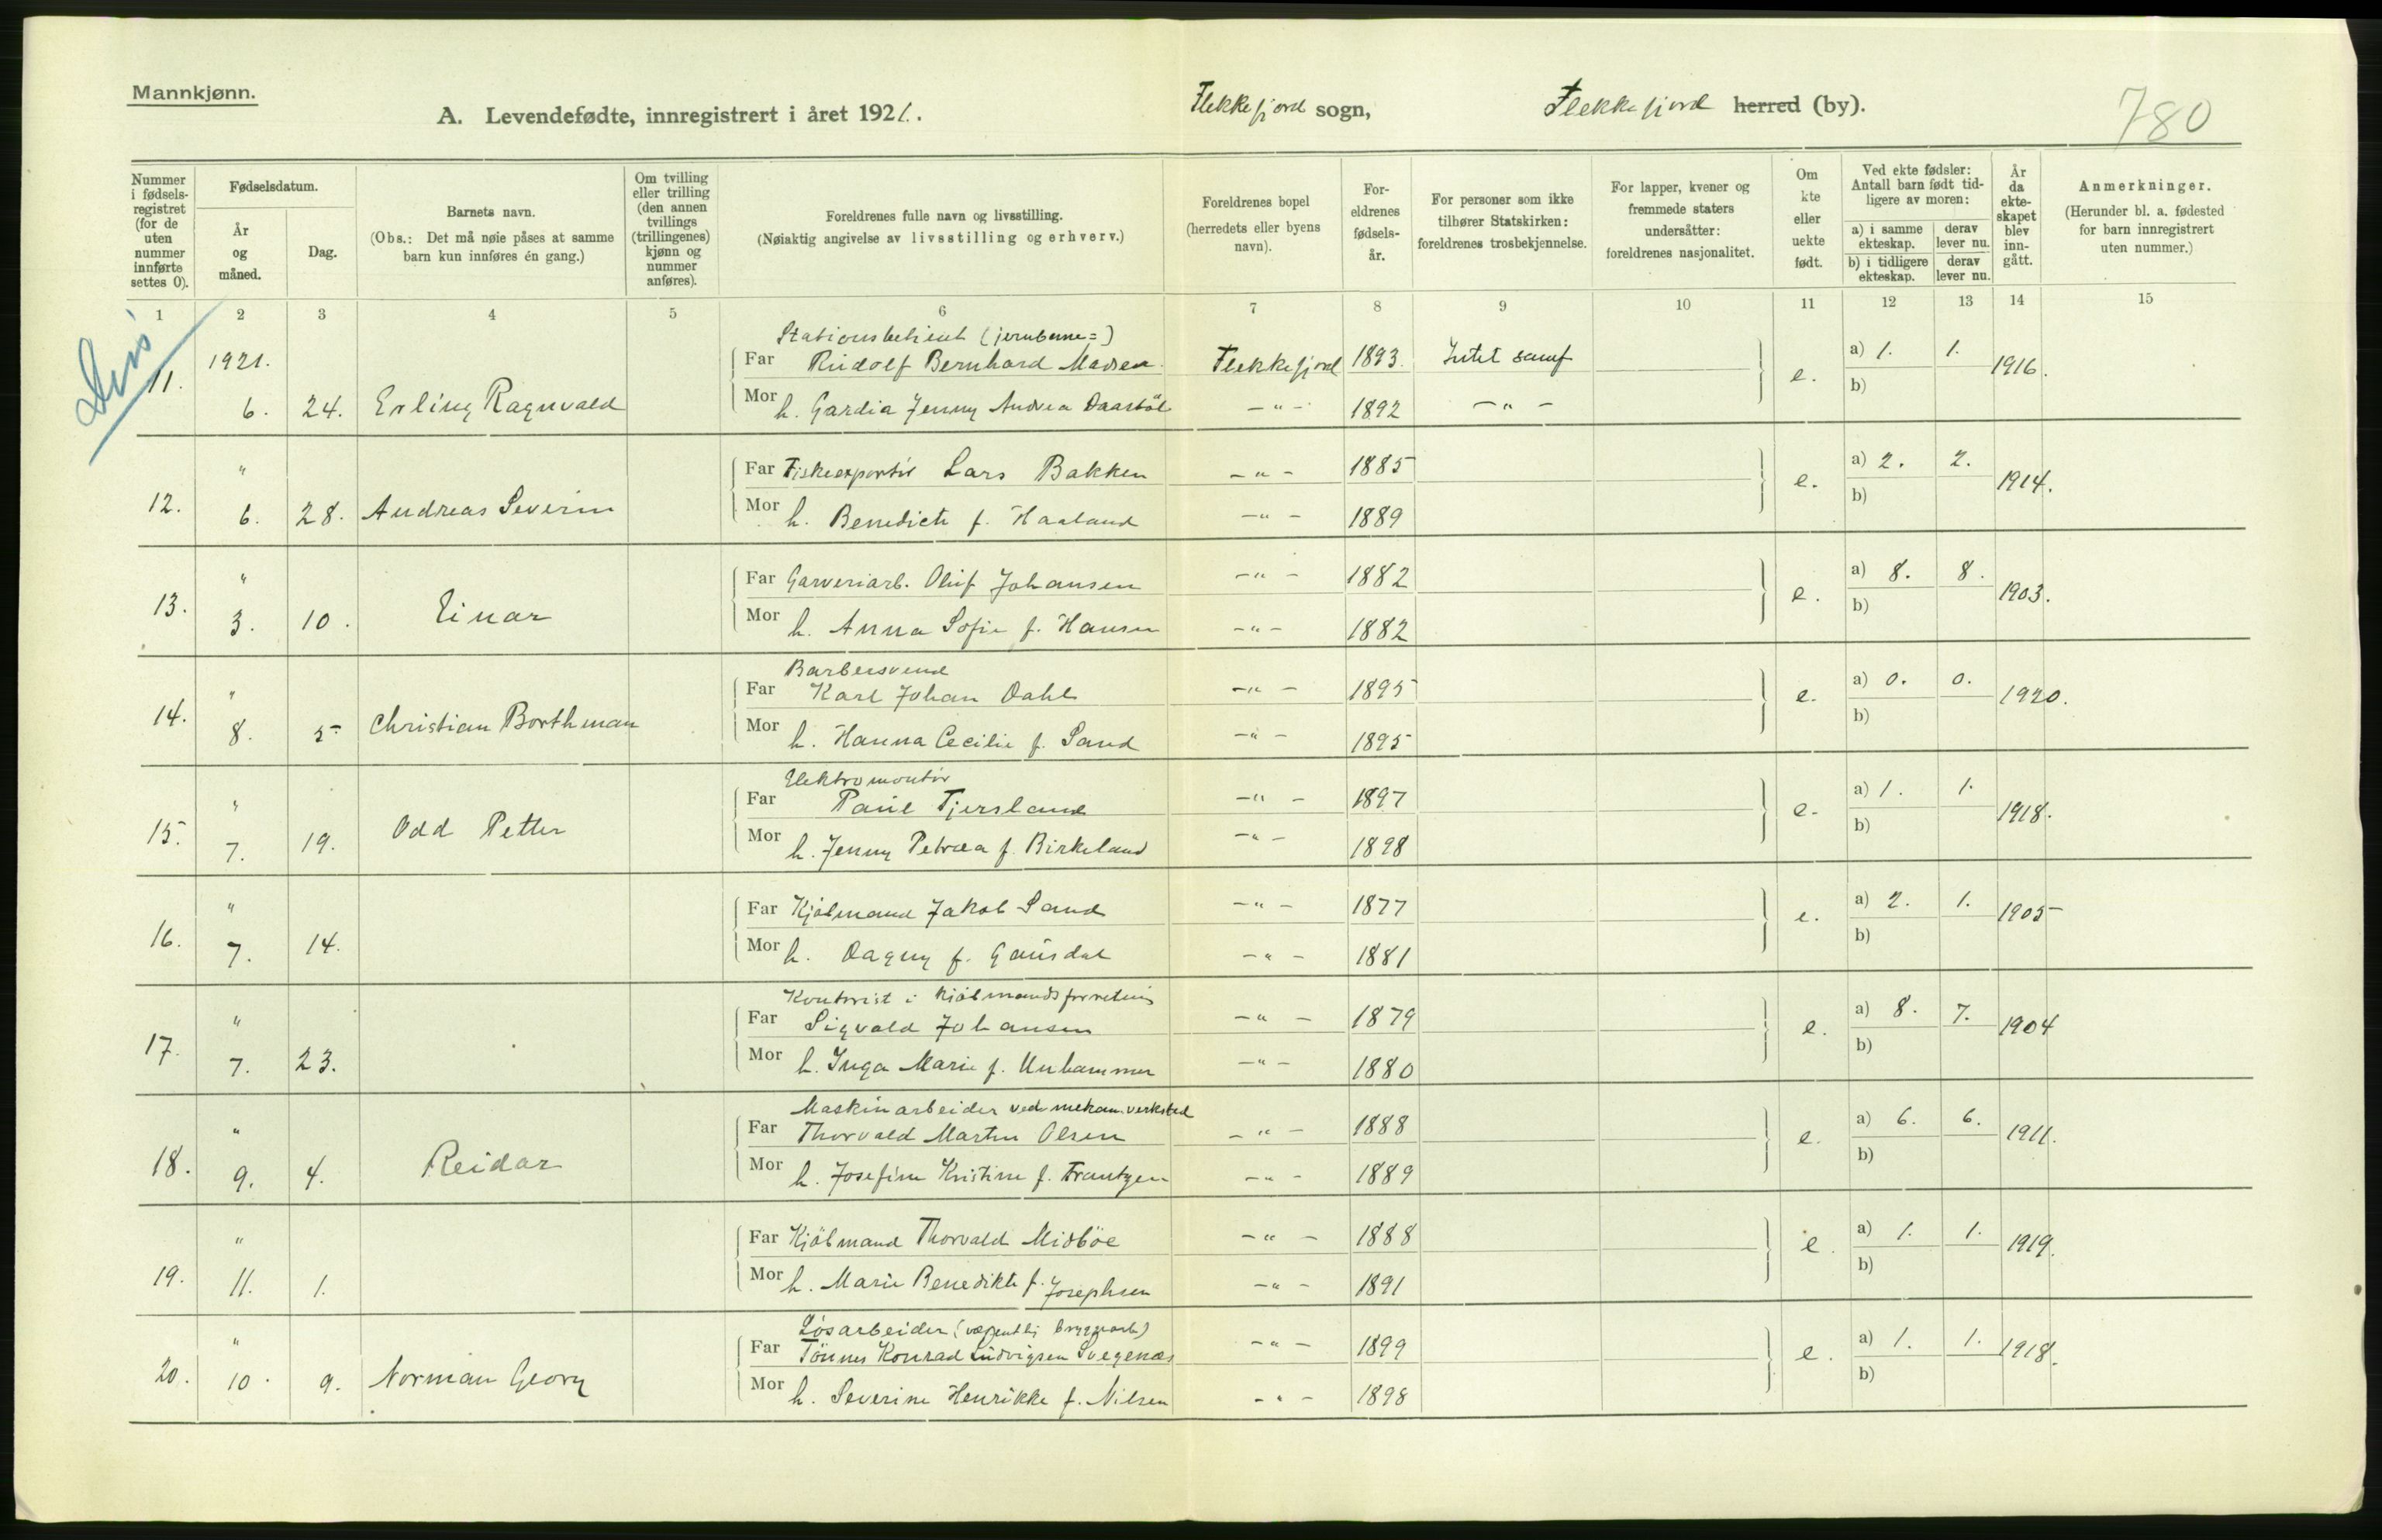 Mannkjønn.
A. Levendefødte, innregistrert i året 1921. Flekkefjord sogn, Flekkefjord herred (by). 780
Nummer i fødselsregistret (for de uten nummer innførte settes 0).
Fødselsdatum.
År og måned.
Dag.
Barnets navn.
(Obs.: Det må nøie påses at samme barn kun innføres én gang.)
Om tvilling eller trilling (den annen tvillings (trillingenes) kjønn og nummer anføres).
Foreldrenes fulle navn og livsstilling.
(Nøiaktig angivelse av livsstilling og erhverv.)
Foreldrenes bopel (herredets eller byens navn).
Foreldrenes fødselsår.
For personer som ikke tilhører Statskirken: foreldrenes trosbekjennelse.
For lapper, kvener og fremmede staters undersåtter: foreldrenes nasjonalitet.
Om kte eller uekte født.
Ved ekte fødsler: Antall barn født tidligere av moren:
a) i samme ekteskap. derav lever nu.
b) i tidligere ekteskap. derav lever nu.
År da ekteskapet blev inngått.
Anmerkninger.
(Herunder bl. a. fødested for barn innregistrert uten nummer.)
1 2 3 4 5 6 7 8 9 10 11 12 13 14 15
Diss
Stationsbetjent (jernbane=)
11. 1921. Far Rudolf Bernhard Madsen. Flekkefjord 1893. Intet samf e. a) 1. 1. 1916.
6. 24. Erling Ragnvald Mor h. Gardia Jenny Andrea -"- 1892 -"- b)
12. " Far Fiskeexportör Lars Bakken -"- 1885 e. a) 2. 2. 1914.
6. 28. Andreas Severin Mor h. Benedicte f. Haaland -"- 1889 b)
13. " Far Garveriarb. Oluf Johansen -"- 1882 e. a) 8. 8. 1903.
3. 10. Einar Mor h. Anna Sofie f. Hansen -"- 1882 b)
Barbersvend
14. " Far Karl Johan Dahl -"- 1895 e. a) 0. 0. 1920.
8. 5 Christian Borthman Mor h. Hanna Cecilie f. Sand -"- 1895 b)
Elektromontör
15. " Far Paul Tjersland -"- 1897 e. a) 1. 1. 1918.
7. 19. Odd Petter Mor h. Jenny Petrea f. Birkeland -"- 1898 b)
16. " Far Kjöbmand Jakob Sand -"- 1877 e. a) 2. 1. 1905
7. 14. Mor h. Dagny f. Gausdal -"- 1881 b)
Kontorist i kjöbmandsforretning
17. " Far Sigvald Johansen -"- 1879 e. a) 8. 7. 1904
7. 23. Mor h. Inga Marie f. Unhammer -"- 1880 b)
Maskinarbeider ved mekan. verksted
18. " Far Thorvald Martin Olsen -"- 1888 e. a) 6. 6. 1911.
9. 4. Reidar Mor h. Josefine Kristine f. Frantzen -"- 1889 b)
19. " Far Kjöbmand Thorvald Midböe -"- 1888 e. a) 1. 1. 1919.
11. 1. Mor h. Marie Benedikte f. Josephsen -"- 1891 b)
Lösarbeider (væsentlig bryggearb)
20. " Far Tönnes Konrad Ludvigsen Svegenæs -"- 1899 e. a) 1. 1. 1918.
10. 9. Norman Georg Mor h. Severine Henrikke f. Nilsen -"- 1898 b)